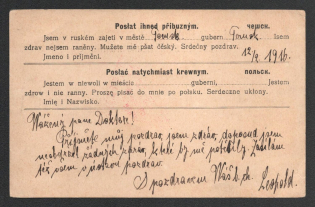 Poslat ihned příbuzným. чешск.
Jsem v ruském zajetí v městě Tomsk gubern. Tomsk.
zdrav nejsem raněny. Mužete mě psát česky. Srdečny pozdrav.
Jmeno i prijmění. 12/4 1916.
Posłać natychmiast krewnym. польск.
Jestem w niewoli w mieście guberni, Jestem
zdrow i nie ranny. Proszę pisać do mnie po polsku. Serdeczne uklony.
Imię i Nazwisko.
Vážený pane Doktore!
Přijměte můj pozdrav jsem zdráv, doposud jsem
neobdržel žádných zpráv, které by mě potěšily. Zasílám
též jsem pozdrav.
S pozdravem Váš Leopold.